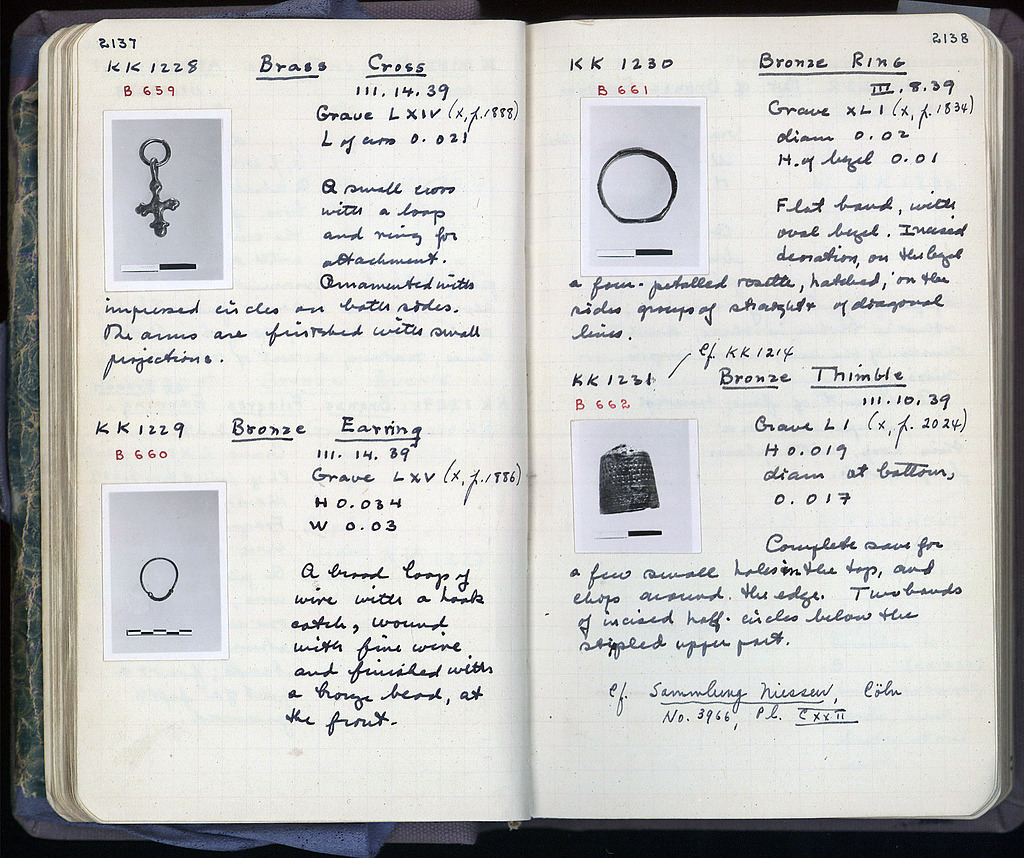 2137
KK 1228 Brass Cross
B 659
III.14.39
Grave LXIV (X, p. 1888)
L of cross 0.021
A small cross
with a loop
and ring for
attachment.
Ornamented with
impressed circles on both sides.
The arms are finished with small
projections.
KK 1229 Bronze Earring
B 660
III.14.39
Grave LXV (X, p. 1886)
H 0.034
W 0.03
A broad loop of
wire with a hook
catch, wound
with fine wire
and finished with
a bronze bead, at
the front.
2138
KK 1230 Bronze Ring
B 661
III.8.39
Grave XLI (X, p. 1834)
diam 0.02
H. of bezel 0.01
Flat band, with
oval bezel. Incised
decoration, on the bezel
a four-petalled rosette, hatched; on the
sides groups of straight & of diagonal
lines.
Cf. KK 1214
KK 1231 Bronze Thimble
B 662
III.10.39
Grave LI (X, p. 2024)
H 0.019
diam at bottom,
0.017
Complete save for
a few small holes in the top, and
chips around the edge. Two bands
of incised half-circles below the
stippled upper part.
Cf. Sammlung Niessen, Cöln
No. 3966, Pl. CXXII